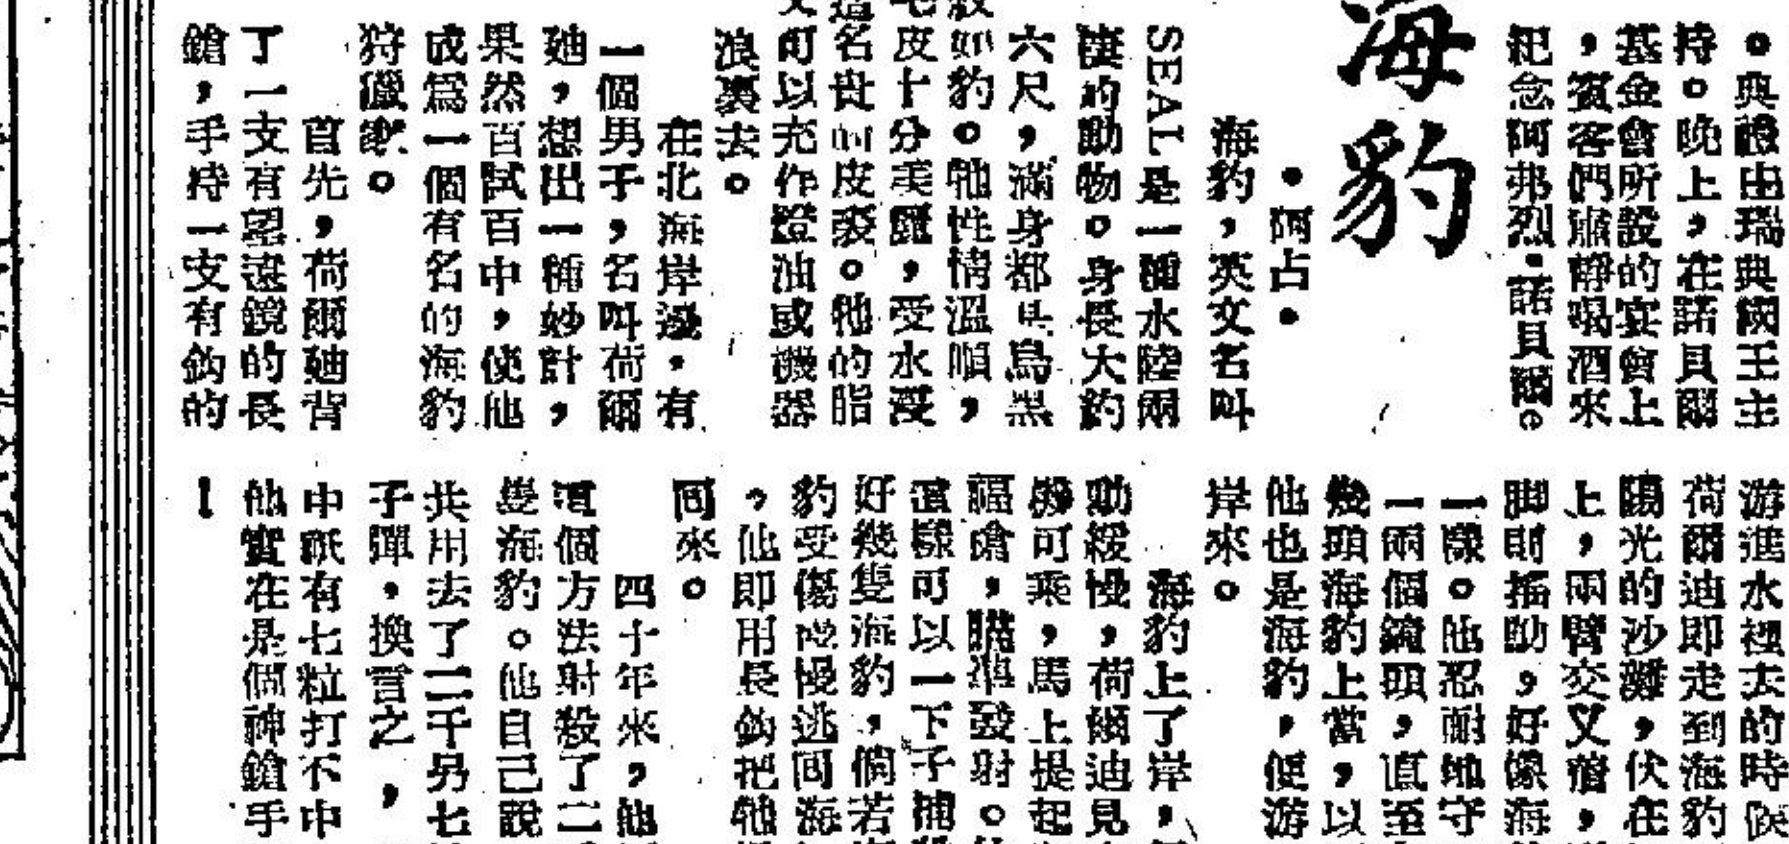 。典禮由瑞典國王主
持。晚上，在諾貝爾
基金會所設的宴會上
，賓客們肅靜喝酒來
紀念阿弗烈·諾貝爾。
海豹
·阿占·
海豹，英文名叫
SEAL是一種水陸兩
棲的動物。身長大約
六尺，滿身都具烏黑
紋如豹。牠性情溫順，
毛皮十分美麗，受水浸
這名貴的皮裘。牠的脂
可以充作燈油或機器
浪裏去。
在北海岸邊，有
一個男子，名叫荷爾
廸，想出一種妙計，
果然百試百中，使他
成爲一個有名的海豹
狩獵家。
首先，荷爾廸背
了一支有望遠鏡的長
鎗，手持一支有鈎的
游進水裡去的時候
荷爾迪即走到海豹
陽光的沙灘，伏在
上，兩臂交叉着，
脚則搖動，好像海
一樣。他忍耐地守
一兩個鐘頭，直至
幾頭海豹上當，以
他也是海豹，便游
岸來。
海豹上了岸，
動緩慢，荷爾迪見
機可乘，馬上提起
鎗，瞄準發射。
這樣可以一下子捕
好幾隻海豹，倘若
豹受傷或慢逃回海
，他即用長鈎把牠
回來。
四十年來，他
這個方法射殺了二
隻海豹。他自己說
共用去了二千另七
子彈，換言之，
中祇有七粒打不中
他實在是個神鎗手
！